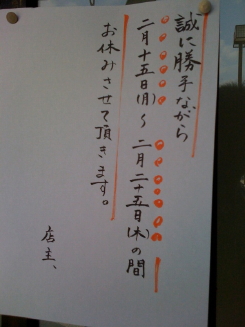 誠に勝手ながら
二月十五日(月)〜二月二十五日(木)の間
お休みさせて頂きます。
店主、